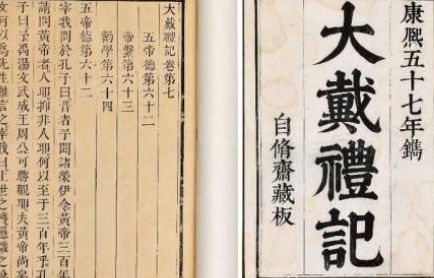 康熙五十七年鐫
大戴禮記
自脩齋藏板
大戴禮記卷第七
五帝德第六十二
帝繫第六十三
勸學第六十四
五帝德第六十二
宰我問於孔子曰昔者予聞諸榮伊令黃帝三百年
請問黃帝者人耶抑非人耶何以至于三百年乎孔
子曰予禹湯文武成王周公可勝觀耶夫黃帝尚矣
女何以爲先生難言之宰我曰上世之傳隱微之